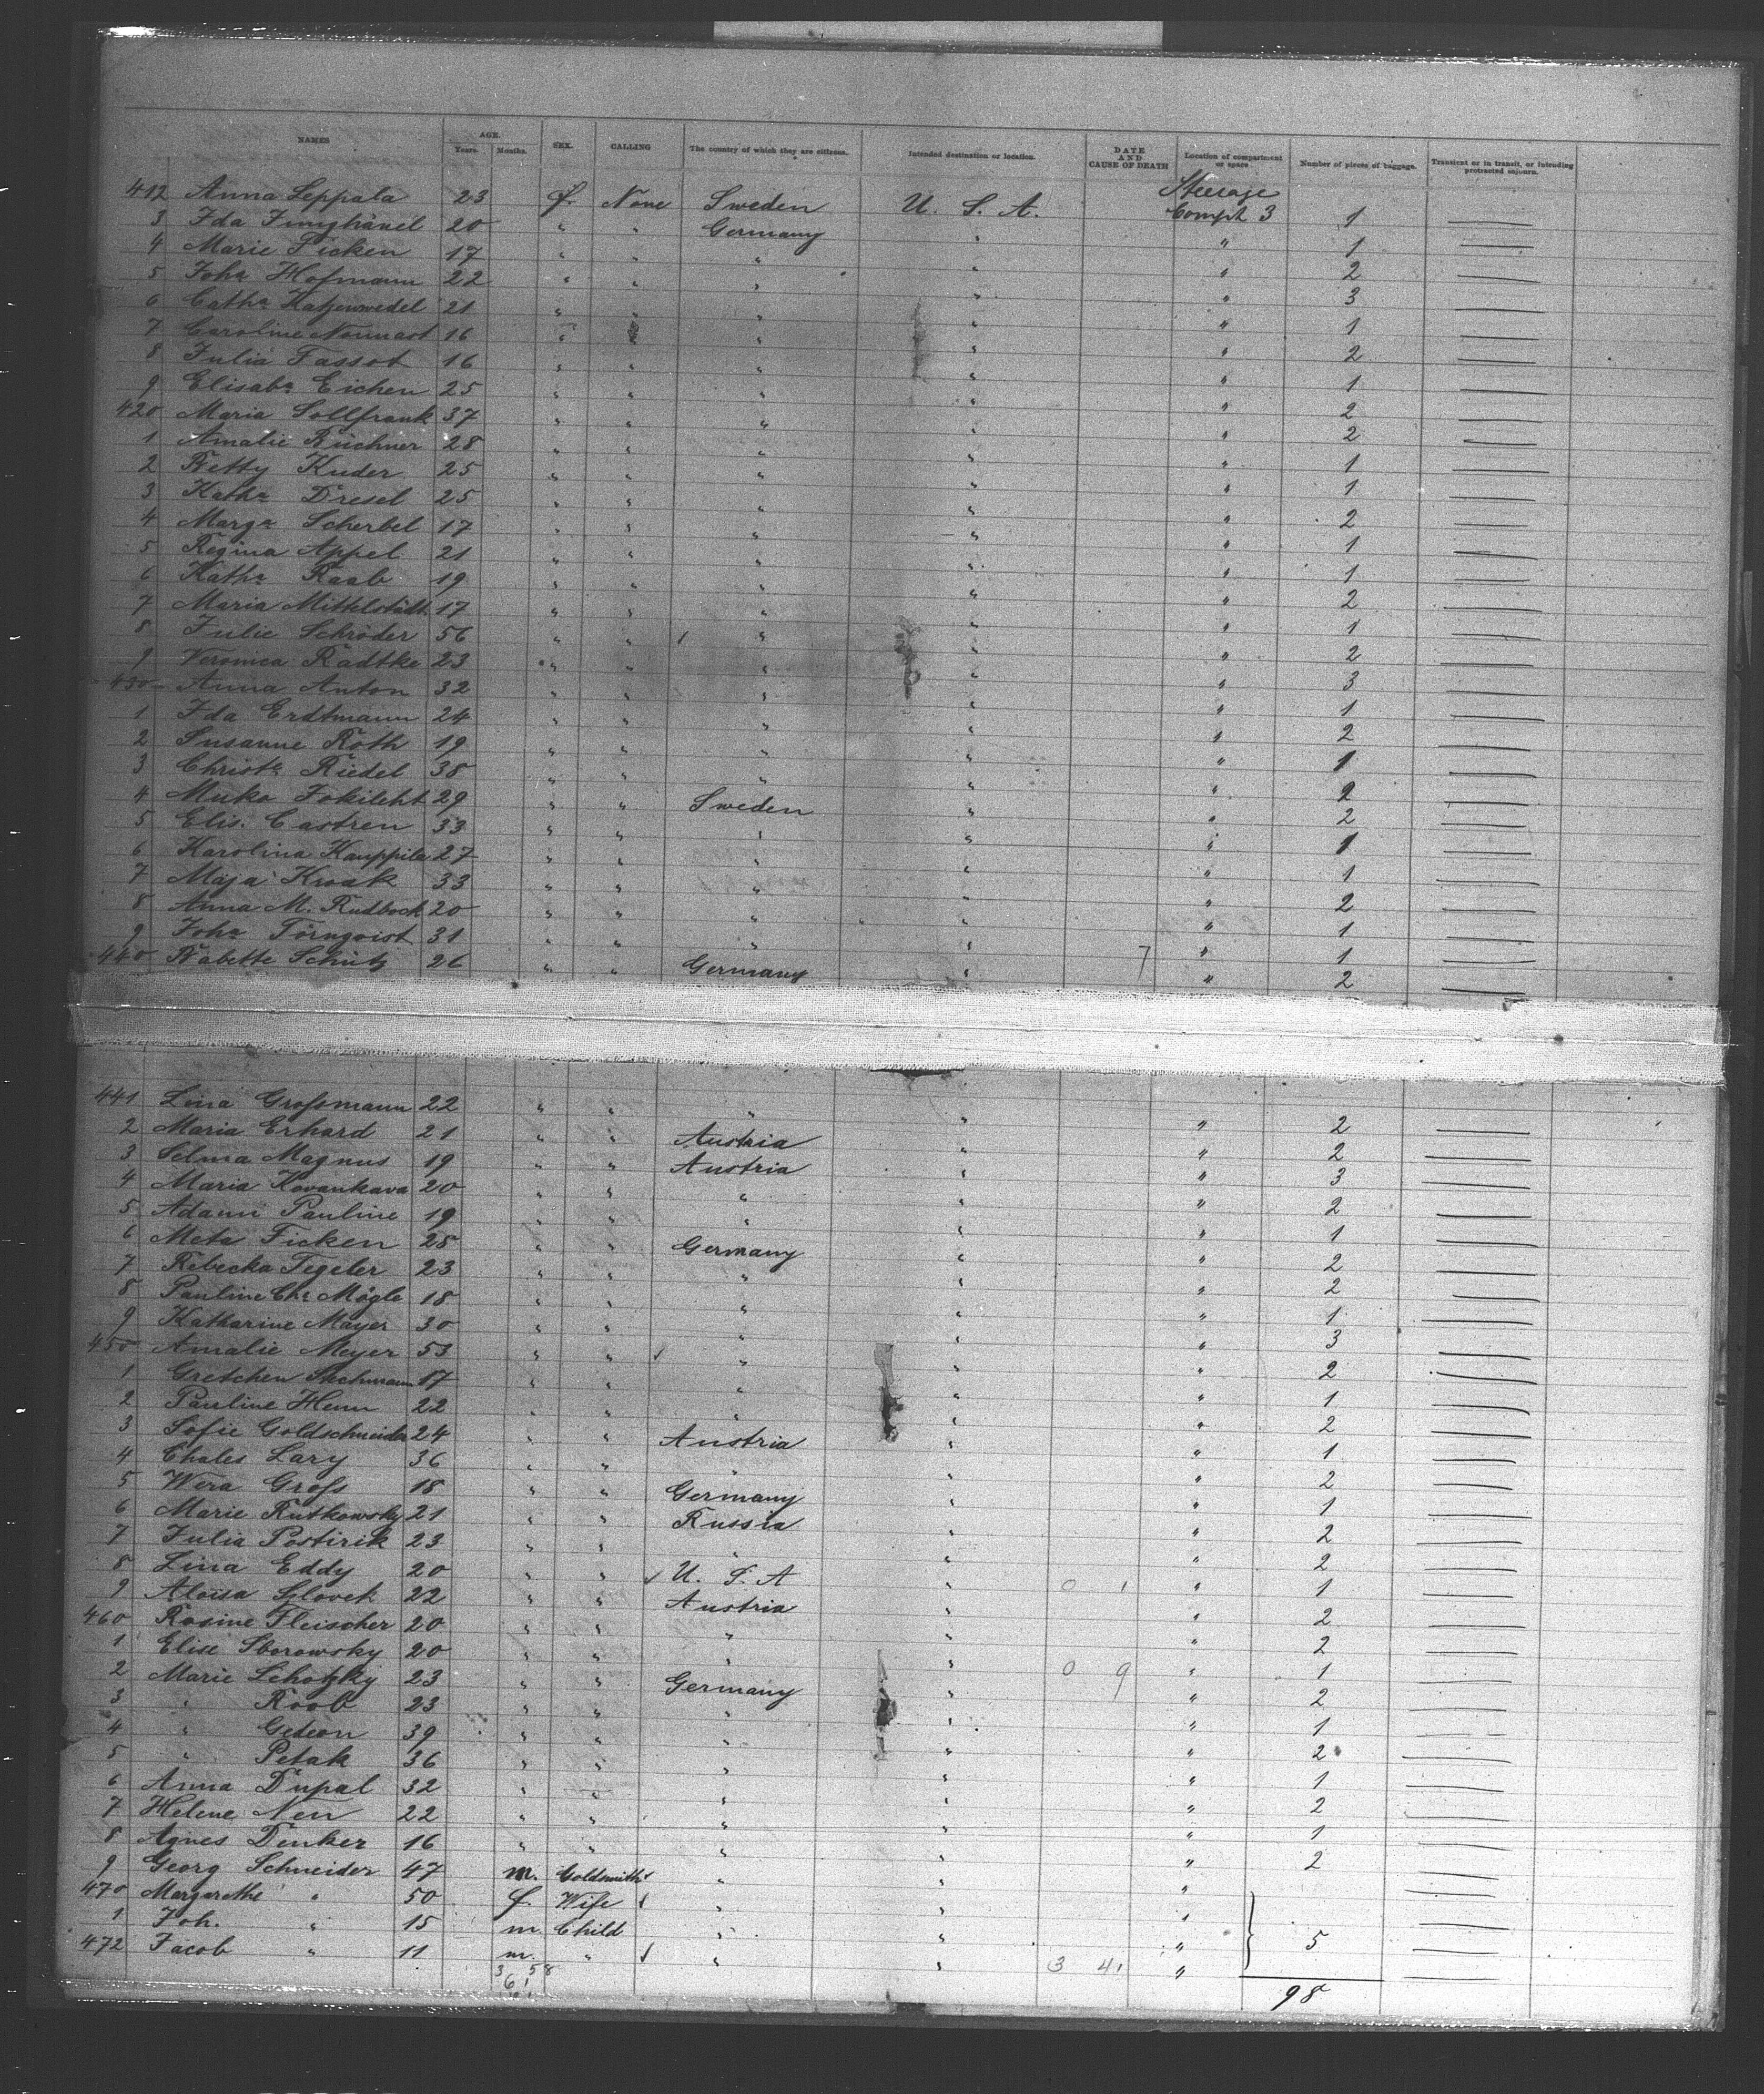 NAMES AGE. Years. Months. SEX. CALLING The country of which they are citizens. Intended destination or location. DATE AND CAUSE OF DEATH Location of compartment or space Number of pieces of baggage. Transient or in transit, or intending protracted sojourn.
412 Anna Leppala 23 f. None Sweden U. S. A. Steerage Compt 3 1
3 Ida Junghänel 20 " " Germany " " 1
4 Marie Ficken 17 " " " " " 2
5 Joha Hofmann 22 " " " " " 3
6 Catha Katzenwedel 21 " " " " " 1
7 Caroline Nonnast 16 " " " " " 2
8 Julia Fassot 16 " " " " " 1
9 Elisaba Eichen 25 " " " " " 2
420 Maria Sollfrank 37 " " " " " 2
1 Amalie Büchner 28 " " " " " 1
2 Betty Kuder 25 " " " " " 1
3 Katha Dresel 25 " " " " " 2
4 Marga Scherbel 17 " " " " " 1
5 Regina Appel 21 " " " " " 1
6 Katha Raab 19 " " " " " 2
7 Maria Mittelstädt 17 " " " " " 1
8 Julie Schröder 56 " " " " " 2
9 Veronica Radtke 23 " " " " " 3
430 Anna Anton 32 " " " " " 1
1 Ida Erdtmann 24 " " " " " 2
2 Susanne Roth 19 " " " " " 1
3 Christa Riedel 38 " " " " " 2
4 Muko Jokileht 29 " " Sweden " " 2
5 Elis. Castren 33 " " " " " 1
6 Karolina Kauppila 27 " " " " " 1
7 Maja Kroak 33 " " " " " 2
8 Anna M. Rudbock 20 " " " " " 1
9 Joha Törnqvist 31 " " " " 7 " 1
440 Babette Schütz 26 " " Germany " " 2
441 Lina Großmann 22 " " " " " 2
2 Maria Erhard 21 " " Austria " " 2
3 Selma Magnus 19 " " Austria " " 3
4 Maria Kovankava 20 " " " " " 2
5 Adami Pauline 19 " " " " " 1
6 Meta Ficken 25 " " Germany " " 2
7 Rebecka Tegeler 23 " " " " " 2
8 Pauline Cha Mögle 18 " " " " " 1
9 Katharine Mayer 30 " " " " " 3
450 Amalie Meyer 53 " " " " " 2
1 Gretchen 17 " " " " " 1
2 Pauline Henn 22 " " " " " 2
3 Sofie Goldschneider 24 " " Austria " " 1
4 Chales Lary 36 " " " " " 2
5 Wera Groß 18 " " Germany " " 1
6 Marie Rutkowsky 21 " " Russia " " 2
7 Julia Postirik 23 " " " " " 2
8 Lina Eddy 20 " " U. S. A " 0 1 " 1
9 Aloisa Slovek 22 " " Austria " " 2
460 Rosine Fleischer 20 " " " " " 2
1 Elise Sborowsky 20 " " " " 0 9 " 1
2 Marie Schotzky 23 " " Germany " " 2
3 " Roob 23 " " " " " 1
4 " Gedeon 39 " " " " " 2
5 " Petak 36 " " " " " 1
6 Anna Dupal 32 " " " " " 2
7 Helene Neu 22 " " " " " 1
8 Agnes Denker 16 " " " " " 2
9 Georg Schneider 47 m. Goldsmith " " "
470 Margarethe " 50 f. Wife " " "
1 Joh. " 15 m Child " " " 5
472 Jacob " 11 m. " " " 3 41 "
3 58
61
98